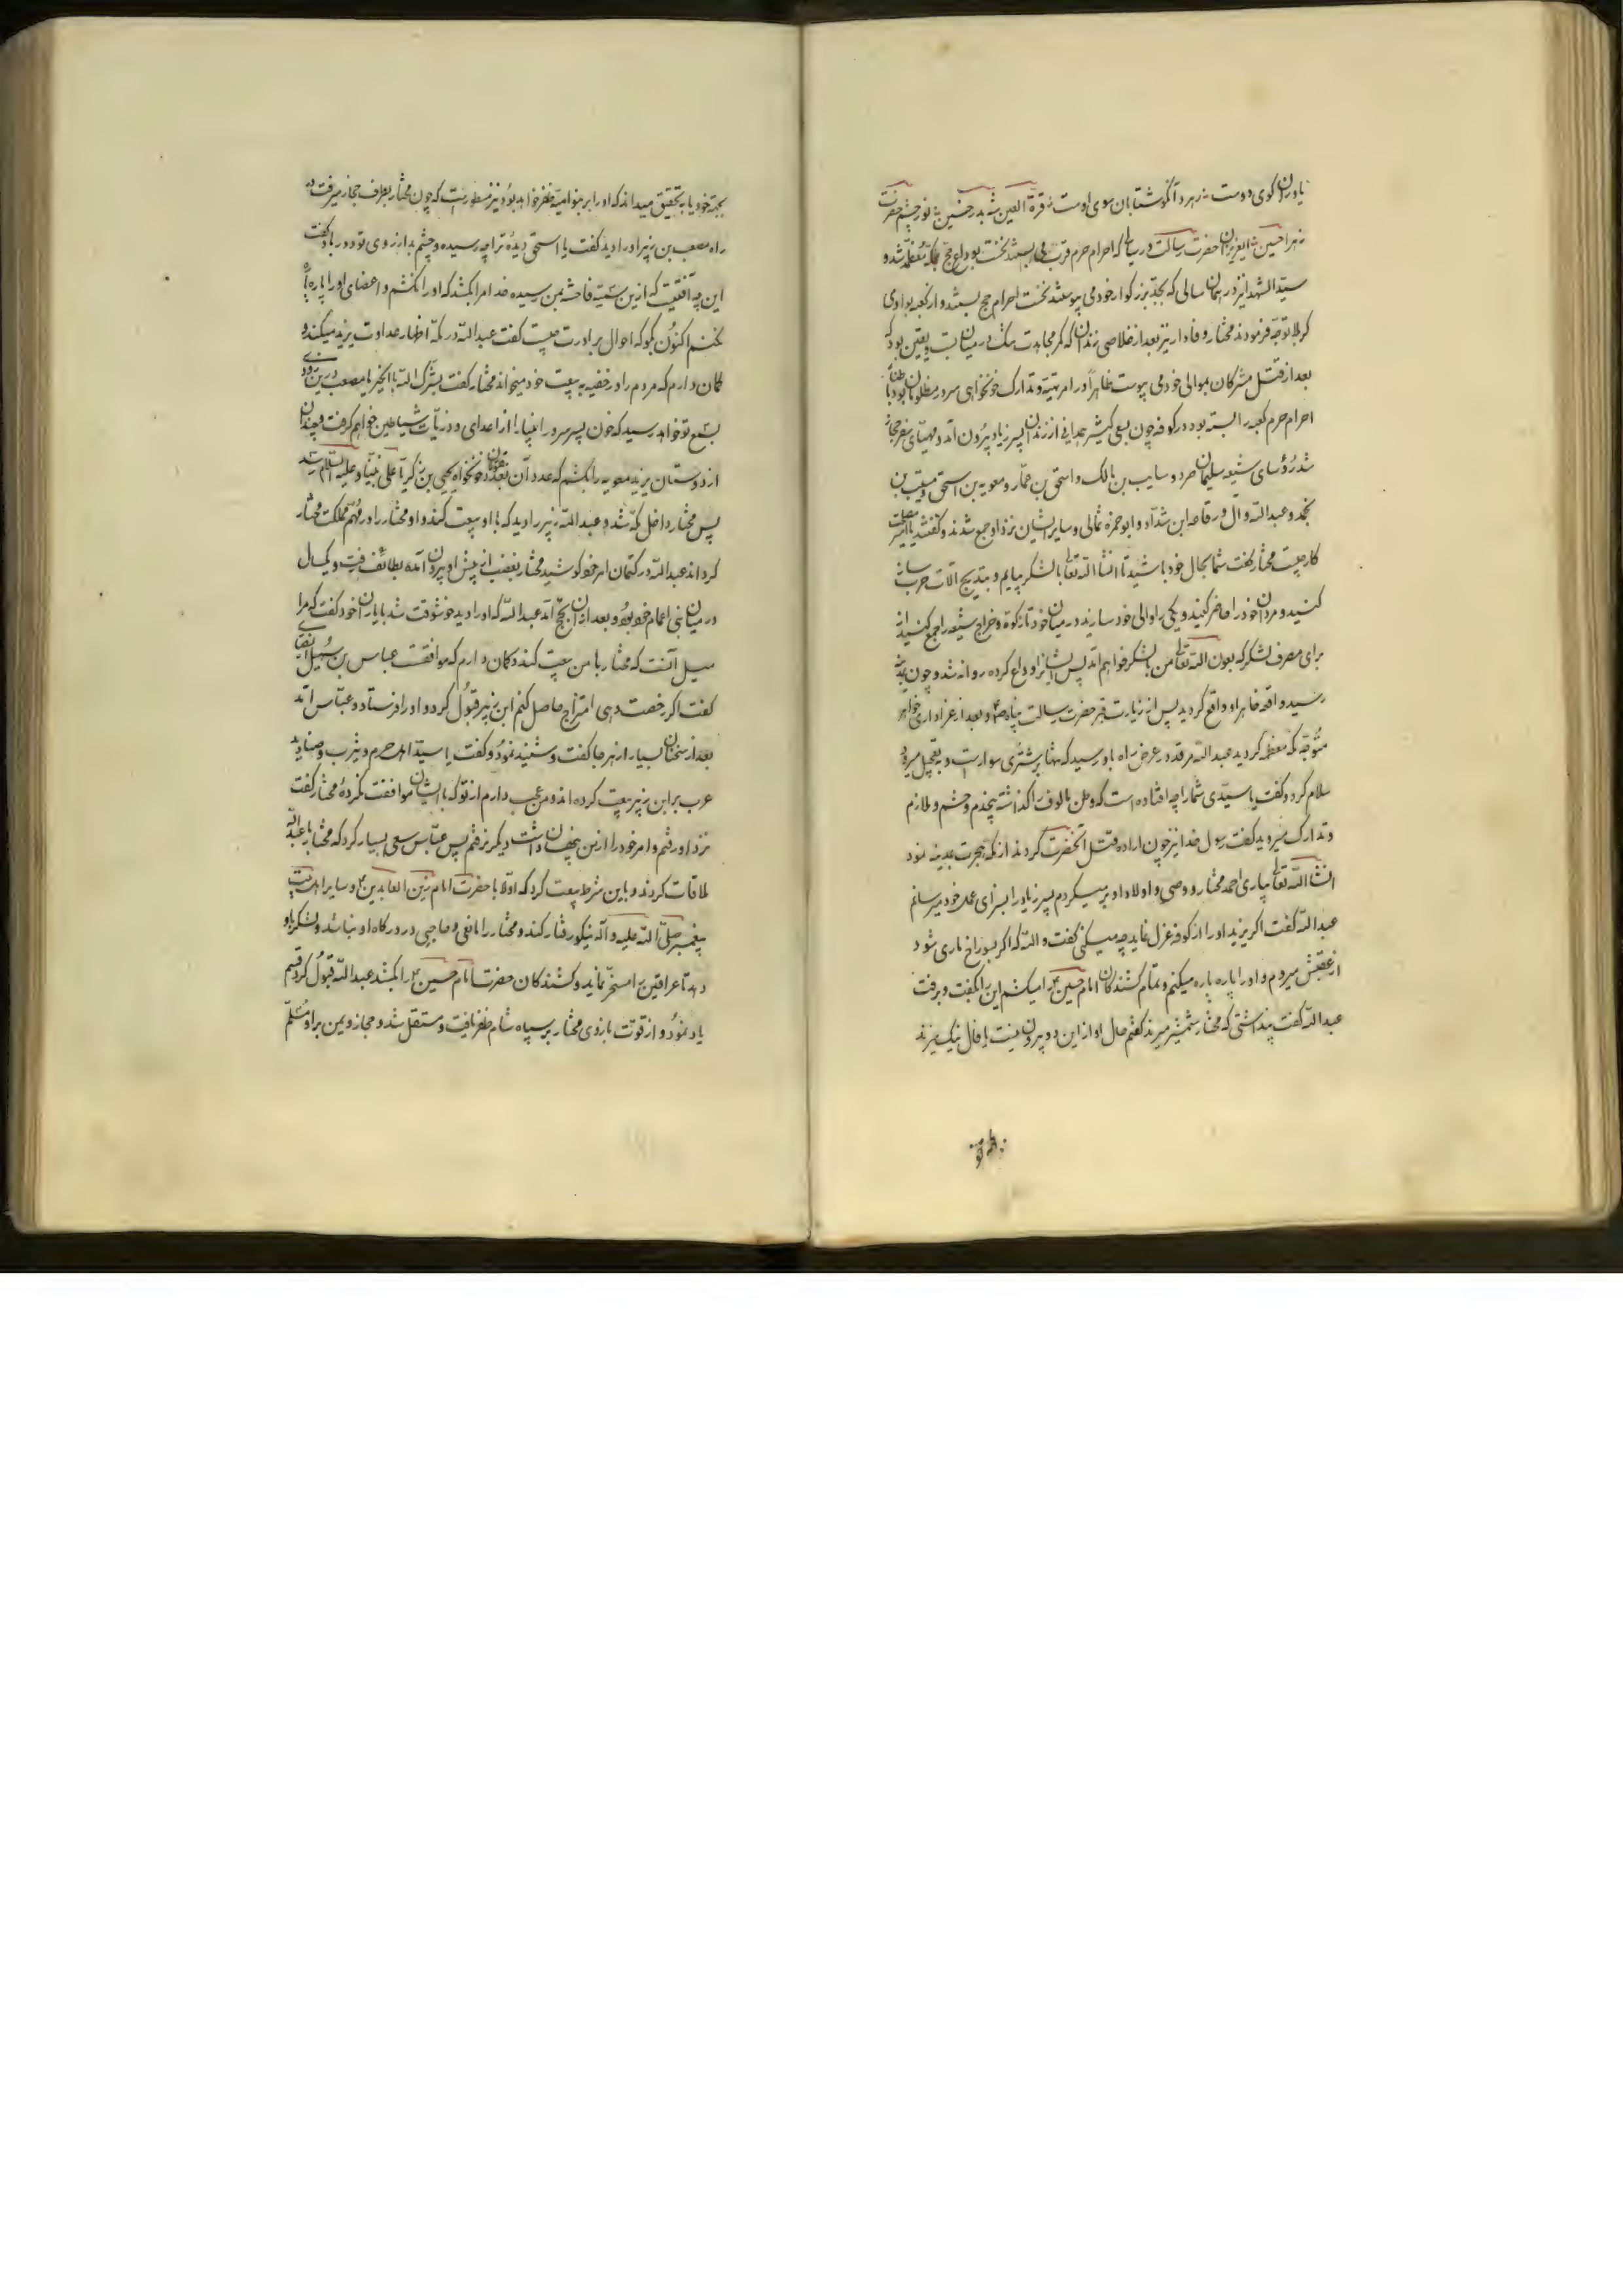 یاوران کوی دوست نه زهرد آنکو شتابان سوی اوست نه قرة العین شه بدر حنین نه نور چشم حضرت
زهرا حسین نه ایعزیزان حضرت رسالت در سالی که احرام حرم قرب می بستند نخست بوداع حج مکه معظمه شد و
سید الشهدا نیز در همان سالی که بجد بزرکوار خود می پیوستند نخست احرام حج بستند و از کعبه بوادی
کربلا توجه فرمودند مختار وفادار نیز بعد از خلاصی زندان که کمر مجاهدت تنک در میان بست و یقین بود که
بعد از قتل مشرکان بموالی خود می پیوست ظاهرا در امر تهیه و تدارک خونخواهی سرور مظلومان بود باطنا با
احرام حرم کعبه را بسته بود در کوفه چون بسعی کثیر همدانی از زندان پسر زیاد بیرون آمد و مهیای سفر حجاز
شد رؤسای شیعه سلیمان صرد و سایب بن مالک و اسحق بن عمار و معویه بن اسحق و مسیب بن
نجمه و عبدالله وال و رفاعه ابن شداد و ابو حمزه ثمالی و سایر ایشان نزد او جمع شدند و کفتند یا امیر مصلحت
کار چیست مختار کفت شما بحال خود باشید تا انشا الله تعالی با لشکر بیایم و بتدریج آلات حرب ساز
کنید و مردان خود را حاضر کنید و یکی را والی خود سازید در میان خود تا زکوة و خراج شیعه را جمع کنید از
برای مصرف لشکر که بعون الله تعالی من با لشکر خواهم آمد پس ایشانرا وداع کرده روانه شد و چون بمدینه
رسید واقعه خاهر او واقع کردید پس از زیارت قبر حضرت رسالت پناه ص و بعد از عزاداری خواهر
متوجه مکه معظمه کردید عبدالله مرقد در عرض راه باو رسید که تنها بر شتری سوار است و بتعجیل میرود
سلام کرد و کفت یا سیدی شما را چه افتاده است که وطن مالوف را کذاشته بیخدم و حشم و ملازم
و تدارک میروید کفت رسول خدا نیز چون اراده قتل آنحضرت کردند از مکه هجرت بمدینه نمود
انشا الله تعالی بیاری احمد مختار و وصی و اولاد او بر میکردم پسر زیاد را بسزای عمل خود میرسانم
عبدالله کفت اکر یزید او را از کوفه عزل نماید چه میکنی کفت والله که اکر بسوراخ ماری شود
از عقبش میروم و او را پاره پاره میکنم و تمام کشندکان امام حسین را میکشم این را بکفت و برفت
عبدالله کفت پنداشتی که مختار شمشیر میزند کفتم حال او از این دو بیرون نیست یا فال نیک میزند
بجهة خود یا بتحقیق میداند که او را بر بنو امیه ظفر خواهد بود و نیز مسطور است که چون مختار بطرف حجاز میرفت در
راه مصعب بن زبیر او را دید کفت یا اسحق دیده ترا چه رسیده و چشم بد از روی تو دور باد کفت
این چه آفتیست که ازین سمیه فاحشه بمن رسیده خدا مرا بکشد که او را نکشم و اعضای او را پاره پاره
نکنم اکنون بکو که احوال برادرت چیست کفت عبدالله در مکه اظهار عداوت یزید میکند و
کمان دارم که مردم را در خفیه به بیعت خود میخواند مختار کفت بشرک الله بالخیر یا مصعب درین زودی
بسمع تو خواهد رسید که خون پسر سرور انبیا را از اعدای و ذریات شیاطین خواهم کرفت و چندان
از دوستان یزید معویه را بکشم که عدد آن بعدد مقتولان خونخواه یحیی بن زکریا علی نبینا و علیه السلام رسد
پس مختار داخل مکه شد و عبدالله زبیر را دید که با او بیعت کند و او مختار را در مهم مملکت مختار
کرداند عبدالله در کتمان امر خود کوشید مختار بغضب از پیش او بیرون آمده بطائف رفت و یکسال
در میان بنی اعمام خود بود و بعد از آن بحج آمد عبدالله که او را دید خوشوقت شد با یاران خود کفت که مرا
میل آنست که مختار با من بیعت کند و کمان دارم که موافقت عباس بن سهیل انصاری
کفت اکر رخصت دهی امتزاج حاصل کنم ابن زبیر قبول کرد و او را فرستاد و عباس آمد
بعد از سخنان بسیار از هر جا کفت و شنید نمود و کفت یا سید اهل حرم و یثرب و صنادید
عرب بر ابن زبیر بیعت کرده اند و من عجب دارم از تو که با ایشان موافقت نکردهٔ مختار کفت
نزد او رفتم و امر خود را از من پنهان داشت دیکر نرفتم پس عباس سعی بسیار کرد که مختار با عبدالله
ملاقات کردند و باین شرط بیعت کرد که اولا با حضرت امام زین العابدین و سایر اهل بیت
پیغمبر صلی الله علیه و آله نیکو رفتار کند و مختار را مانعی و حاجبی در درکاه او نباشد و لشکر باو
دهد تا عراقین را مسخر نماید و کشندکان حضرت امام حسین را بکشد عبدالله قبول کرد قسم
یاد نمود و از قوت بازوی مختار بر سپاه شام ظفر یافت و مستقل شد و حجاز و یمن بر او مسلم